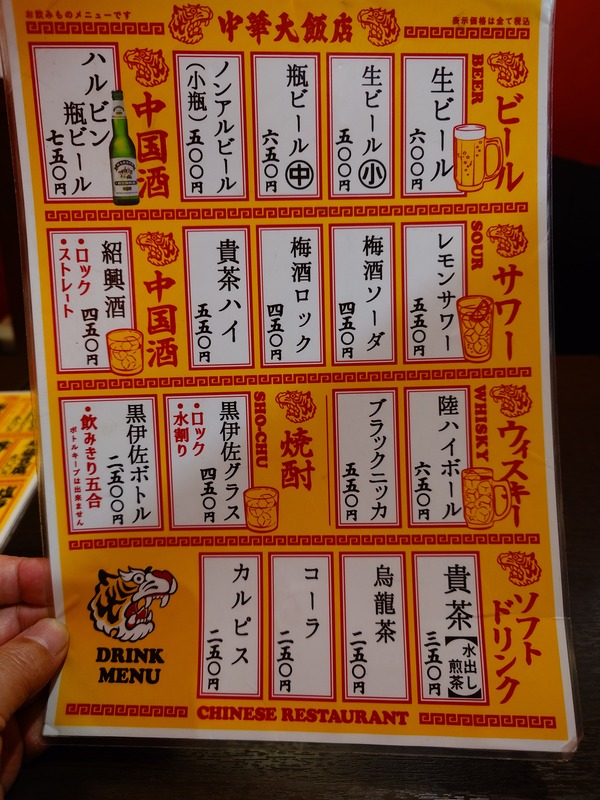 お飲みものメニューです
中華大飯店
表示価格は全て税込
ビール
BEER
生ビール
六〇〇円
生ビール小
五〇〇円
瓶ビール中
六五〇円
ノンアルビール
(小瓶)五〇〇円
中国酒
ハルビン
瓶ビール
七五〇円
サワー
SOUR
レモンサワー
五五〇円
梅酒ソーダ
四五〇円
梅酒ロック
四五〇円
貴茶ハイ
五五〇円
中国酒
紹興酒
四五〇円
・ロック
・ストレート
ウィスキー
WHISKY
陸ハイボール
六五〇円
ブラックニッカ
五五〇円
焼酎
SHO-CHU
黒伊佐グラス
四五〇円
・ロック
・水割り
黒伊佐ボトル
二五〇〇円
・飲みきり五合
ボトルキープは出来ません
ソフト
ドリンク
貴茶【水出し煎茶】
三五〇円
烏龍茶
二五〇円
コーラ
二五〇円
カルピス
二五〇円
DRINK
MENU
CHINESE RESTAURANT